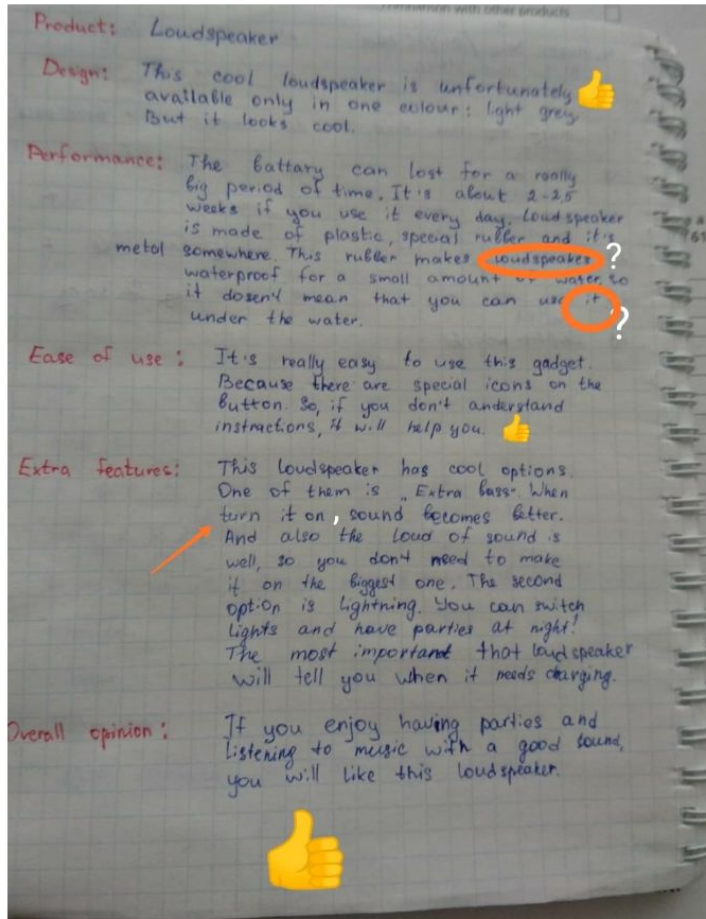 with other products
Product: Loudspeaker
Design: This cool loudspeaker is unfortunately
available only in one colour: light grey.
But it looks cool.
Performance: The battary can lost for a really
big period of time. It's about 2-2,5
weeks if you use it every day. Loudspeaker
is made of plastic, special rubber and it's
metal somewhere. This rubber makes loudspeaker ?
waterproof for a small amount of water, so
it dosen't mean that you can use it
under the water. ?
Ease of use: It's really easy to use this gadget.
Because there are special icons on the
button. So, if you don't anderstand
instractions, it will help you.
Extra features: This loudspeaker has cool options.
One of them is „Extra bass". When
turn it on, sound becomes better.
And also the loud of sound is
well, so you don't need to make
it on the biggest one. The second
option is lightning. You can switch
lights and have parties at night!
The most important that loudspeaker
will tell you when it needs charging.
Overall opinion: If you enjoy having parties and
listening to music with a good sound,
you will like this loudspeaker.